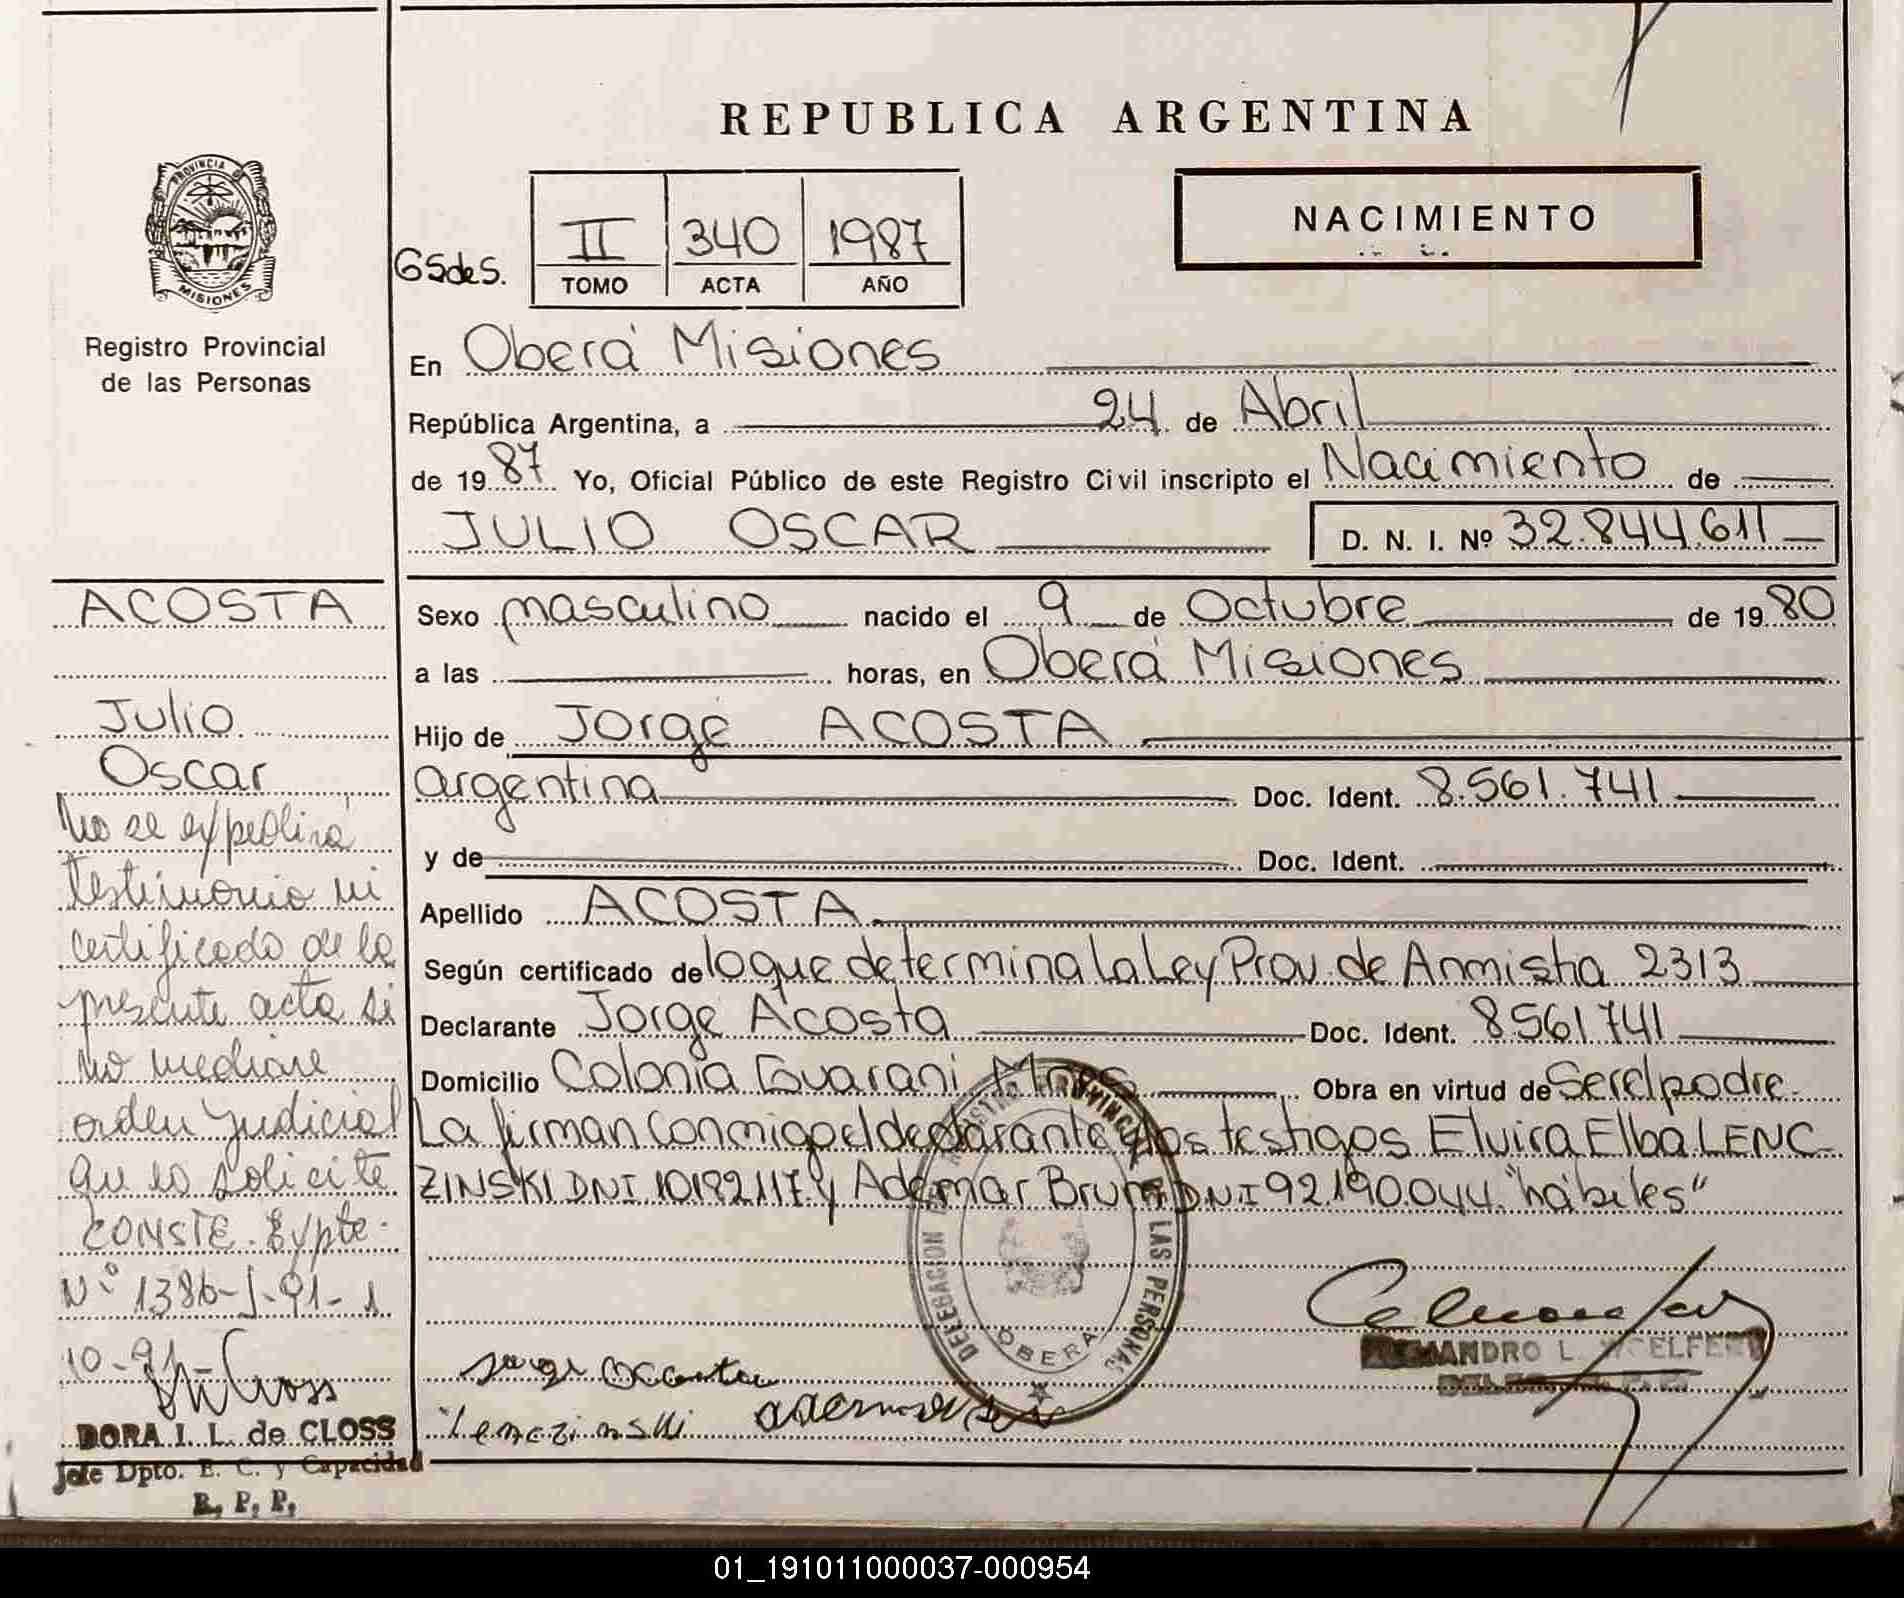 REPUBLICA ARGENTINA
PROVINCIA DE
MISIONES
Registro Provincial
de las Personas
NACIMIENTO
II 340 1987
TOMO ACTA AÑO
En Oberá Misiones
República Argentina, a 24 de Abril
de 1987 Yo, Oficial Público de este Registro Civil inscripto el Nacimiento de
JULIO OSCAR D. N. I. Nº 32.844.611
ACOSTA
Julio
Oscar
No se expedirá
testimonio ni
certificado de la
presente acta si
no mediare
orden judicial
que lo solicite
CONSTE. Expte.
Nº 1386-J-91-1
10-91-
DORA I. L. de CLOSS
Jefe Dpto. E. C. y Capacidad
R. P. P.
Sexo masculino nacido el 9 de Octubre de 1980
a las horas, en Oberá Misiones
Hijo de Jorge ACOSTA
argentina Doc. Ident. 8.561.741
y de Doc. Ident.
Apellido ACOSTA
Según certificado de lo que determina la Ley Prov. de Anmistia 2313
Declarante Jorge Acosta Doc. Ident. 8561741
Domicilio Colonia Guarani Mnes Obra en virtud de Ser el padre.
La firman conmigo el declarante y los testigos Elvira Elba LENC-
ZINSKI DNI 10182117 y Ademar Brum DNI 92.190.044. "hábiles"
DELEGACION REGISTRO PROVINCIAL DE LAS PERSONAS
OBERA
Jorge Acosta
Lenczinski
ALEJANDRO L.
01_191011000037-000954